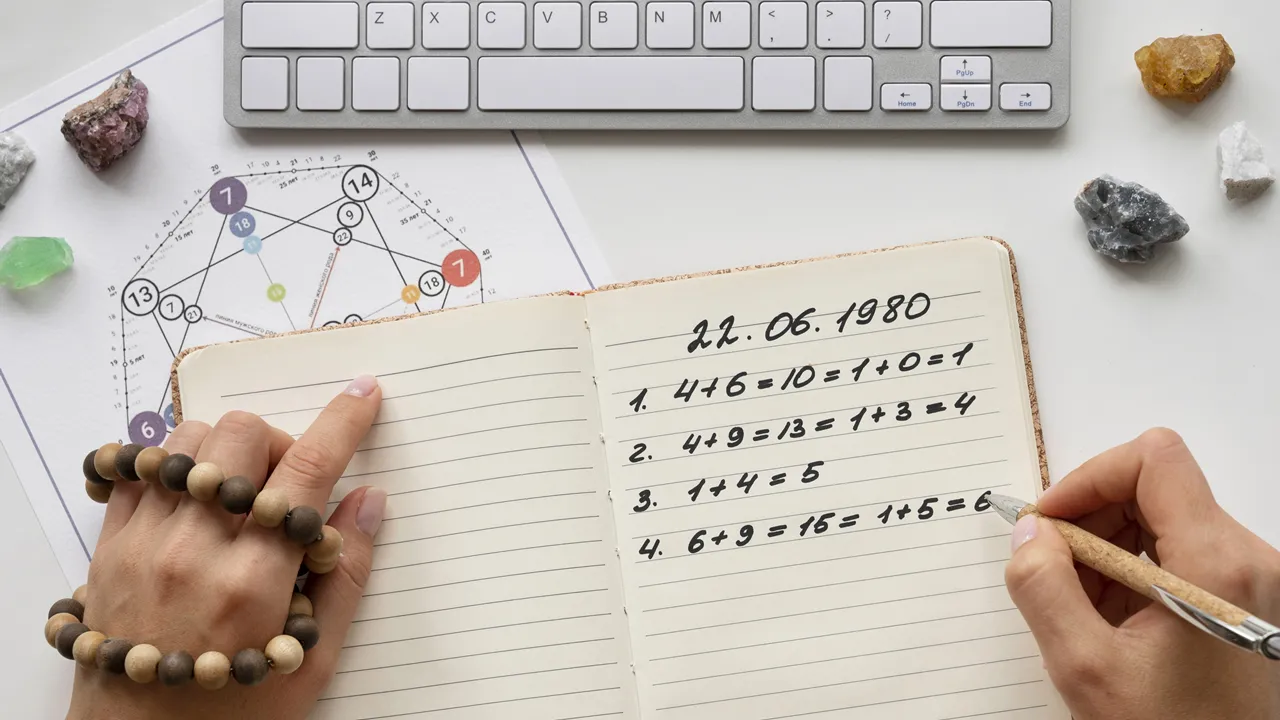 Z X C V B N M < , > . ? /
↑ PgUp
← Home ↓ PgDn → End
20 17 10 4 21 11 8 22 30
7 25 лет 14
18 9
22
15 лет 35 лет
40
7
18
10
13 7 21
линия мужского рода
5 лет
6
22.06.1980
1. 4+6=10=1+0=1
2. 4+9=13=1+3=4
3. 1+4=5
4. 6+9=15=1+5=6